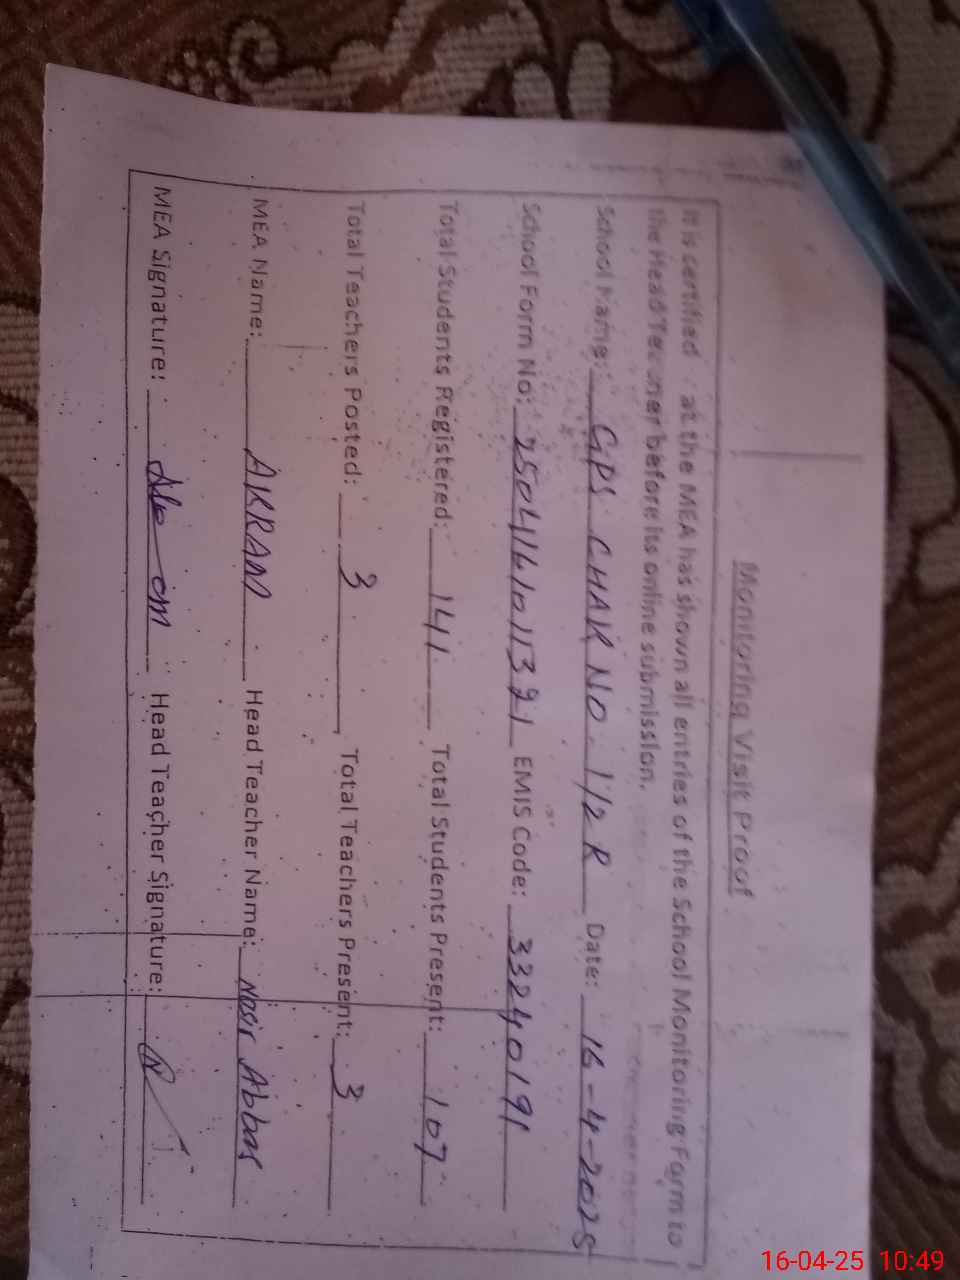 Monitoring Visit Proof
It is certified that the MEA has shown all entries of the School Monitoring Form to
the Head Teacher before its online submission.
School Name: GPS CHAK NO. 1/2 R Date: 16-4-2025
School Form No: EMIS Code: 33240191
Total Students Registered: 141 Total Students Present: 107
Total Teachers Posted: 3 Total Teachers Present: 3
MEA Name: AKRAM Head Teacher Name: Nasir Abbas
MEA Signature: Head Teacher Signature:
16-04-25 10:49